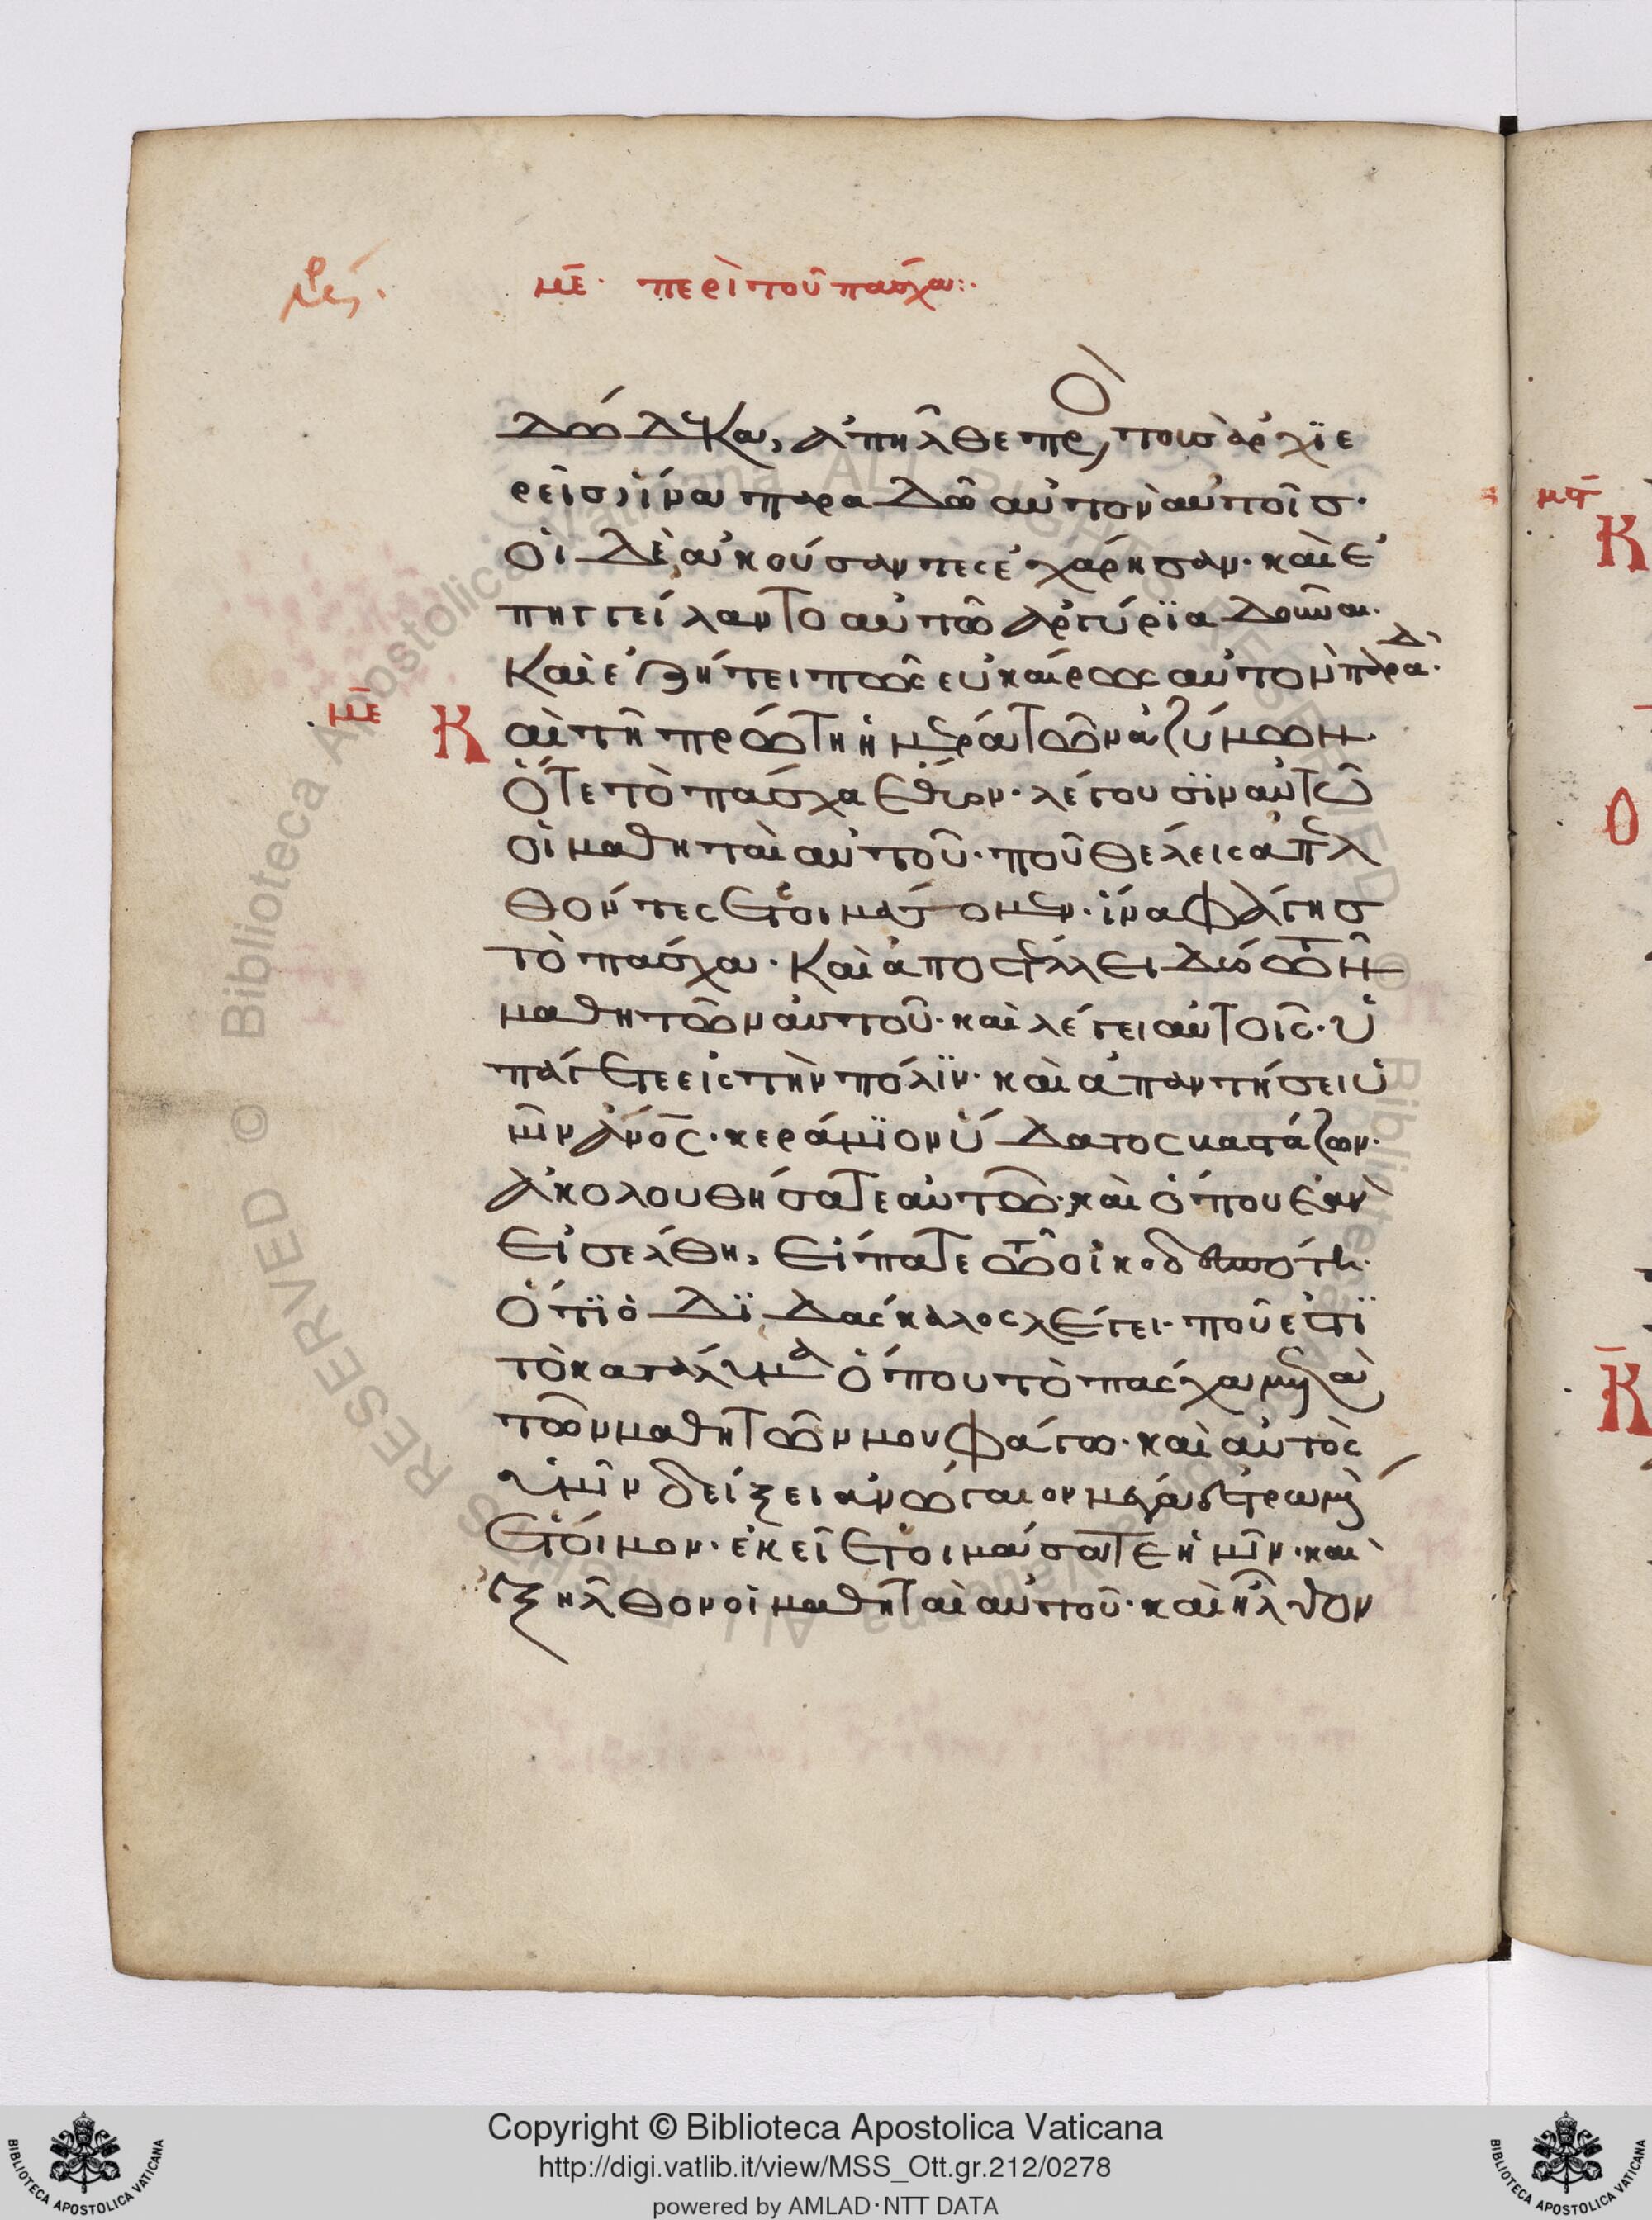 με· περὶ τοῦ πάσχα:·
δώδεκα, ἀπῆλθε πρὸς τοὺς ἀρχϊε
ρεῖς, ἵνα παραδῶ αὐτὸν αὐτοῖς·
οἱ δὲ ἀκούσαντες ἐχάρησαν· καὶ ἐ
πηγγείλαντο αὐτῶ ἀργύρϊα δοῦναι·
καὶ ἐζήτει πῶς εὐκαίρως αὐτὸν παραδ·
με Καὶ τῆ πρώτη ἡμέρα τῶν ἀζύμων·
ὅτε τὸ πάσχα ἔθυον· λέγουσϊν αὐτῶ
οἱ μαθηταὶ αὐτοῦ· ποῦ θέλεις ἀπελ
θόντες ἑτοιμάσομεν· ἵνα φάγης
τὸ πάσχα· καὶ ἀποστέλλει δύο τῶν
μαθητῶν αὐτοῦ· καὶ λέγει αὐτοῖς· ὑ
πάγετε εἰς τὴν πόλϊν· καὶ ἀπαντήσει ὑ
μῖν ἄνος· κεράμϊον ὕδατος βαστάζων·
ἀκολουθήσατε αὐτῶ· καὶ ὅπου ἐὰν
εἰσέλθη, εἴπατε τῶ οἰκοδεσπότη·
ὅτϊ ὁ δϊδάσκαλος λέγει· ποῦ ἐστϊ
τὸ κατάλυμα ὅπου τὸ πάσχα μετὰ
τῶν μαθητῶν μου φάγω· καὶ αὐτὸς
ὑμῖν δείξει ἀνώγαιον μέγα ἐστρωμέν
ἕτοιμον· ἐκεῖ ἑτοιμάσατε ἡμῖν· καὶ
ἐξῆλθον οἱ μαθηταὶ αὐτοῦ· καὶ ἦλθον
Biblioteca Apostolica Vaticana ALL RIGHTS RESERVED ©
Copyright © Biblioteca Apostolica Vaticana
http://digi.vatlib.it/view/MSS_Ott.gr.212/0278
powered by AMLAD·NTT DATA
BIBLIOTECA APOSTOLICA VATICANA
BIBLIOTECA APOSTOLICA VATICANA